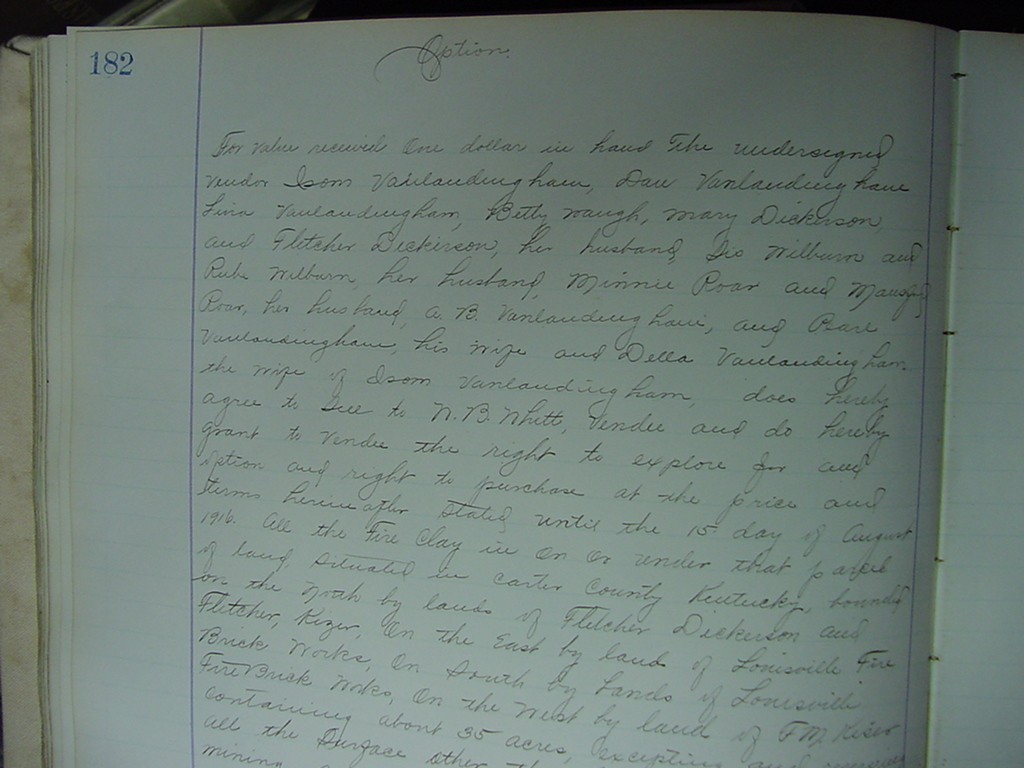 182
Option.
For value received One dollar in hand The undersigned
vendor Isom Vanlandingham, Dan Vanlandingham
Lina Vanlandingham, Betty Waugh, Mary Dickerson,
and Fletcher Dickerson, her husband, Sis Wilburn and
Rube Wilburn, her husband, Minnie Roar and Mansfield
Roar, her husband, A. B. Vanlandingham, and
Vanlandingham, his wife and Della Vanlandingham
the wife of Isom Vanlandingham, does hereby
agree to Sell to N. B. Whitt, Vendee and do hereby
grant to Vendee the right to explore for and
option and right to purchase at the price and
terms hereinafter stated until the 15 day of August
1916. All the Fire Clay in On Or under that parcel
of land, situated in Carter County Kentucky, bounded
on the North by lands of Fletcher Dickerson and
Fletcher, Kizer, On the East by lands of Louisville Fire
Brick Works, On South by Lands of Louisville
Fire Brick Works, On the West by land of F M Kiser
Containing about 35 acres, excepting and
all the Surface other
mining